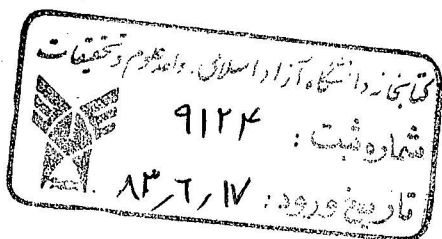 کتابخانه دانشگاه آزاد اسلامی . واحد علوم و تحقیقات
شماره ثبت : ۹۱۲۴
تاریخ ورود : ۸۳٫۶٫۱۷